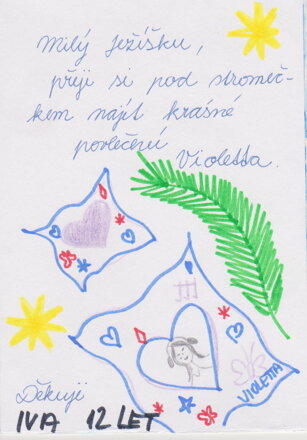 Milý Ježíšku,
přeji si pod stromeč-
kem najít krásné
povlečení
Violetta.
VIOLETTA
Děkuji
IVA 12 LET